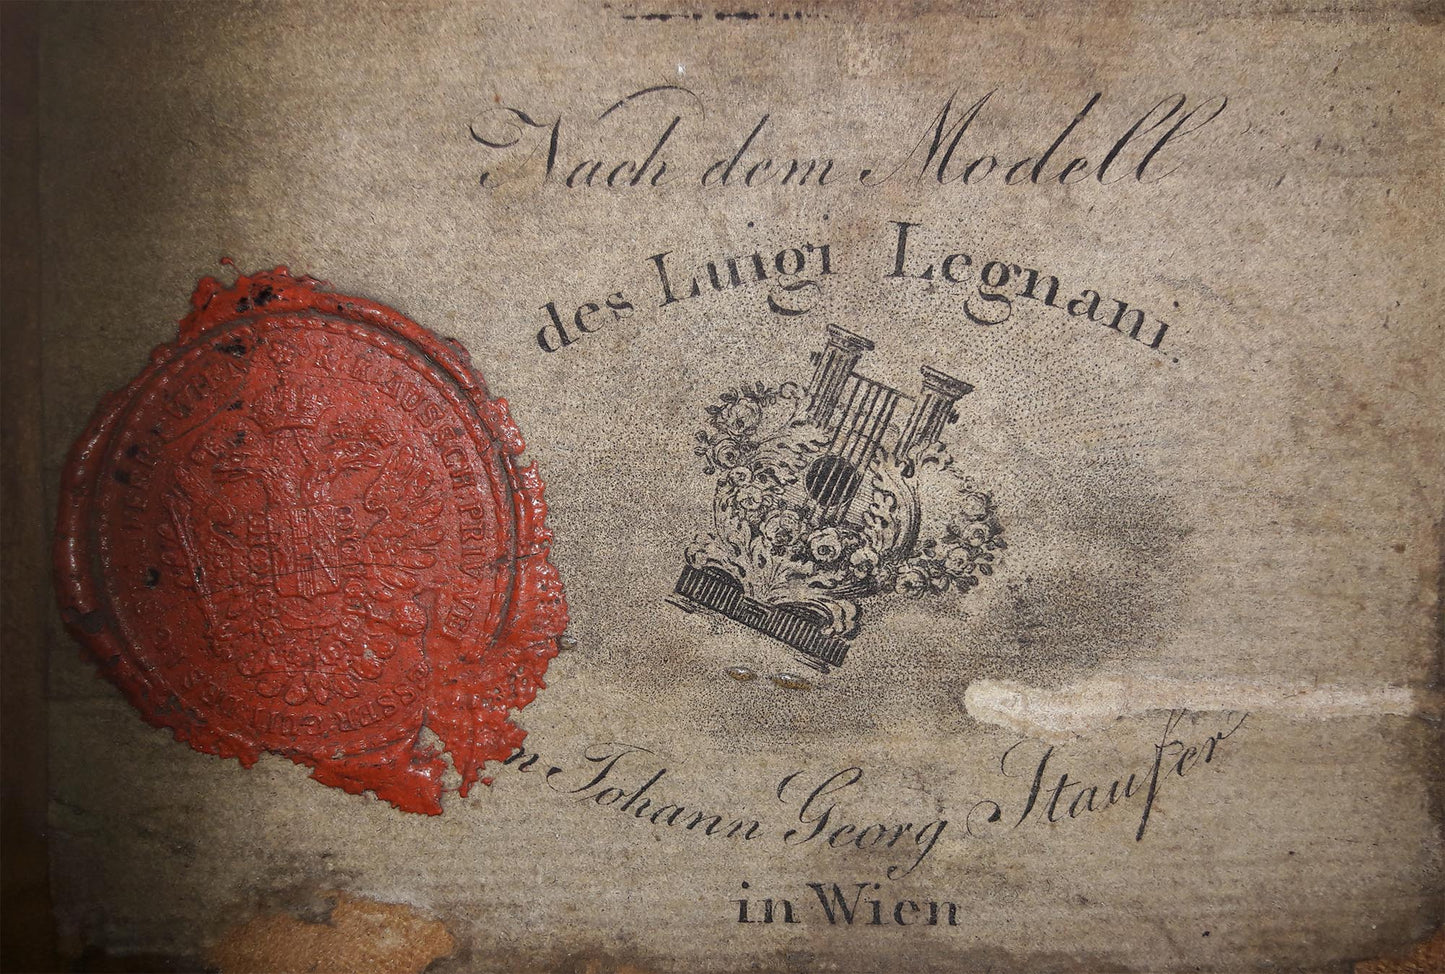 Nach dem Modell
des Luigi Legnani.
n Johann Georg Staufer
in Wien
K. K. AUSSCHL PRIV
WIEN